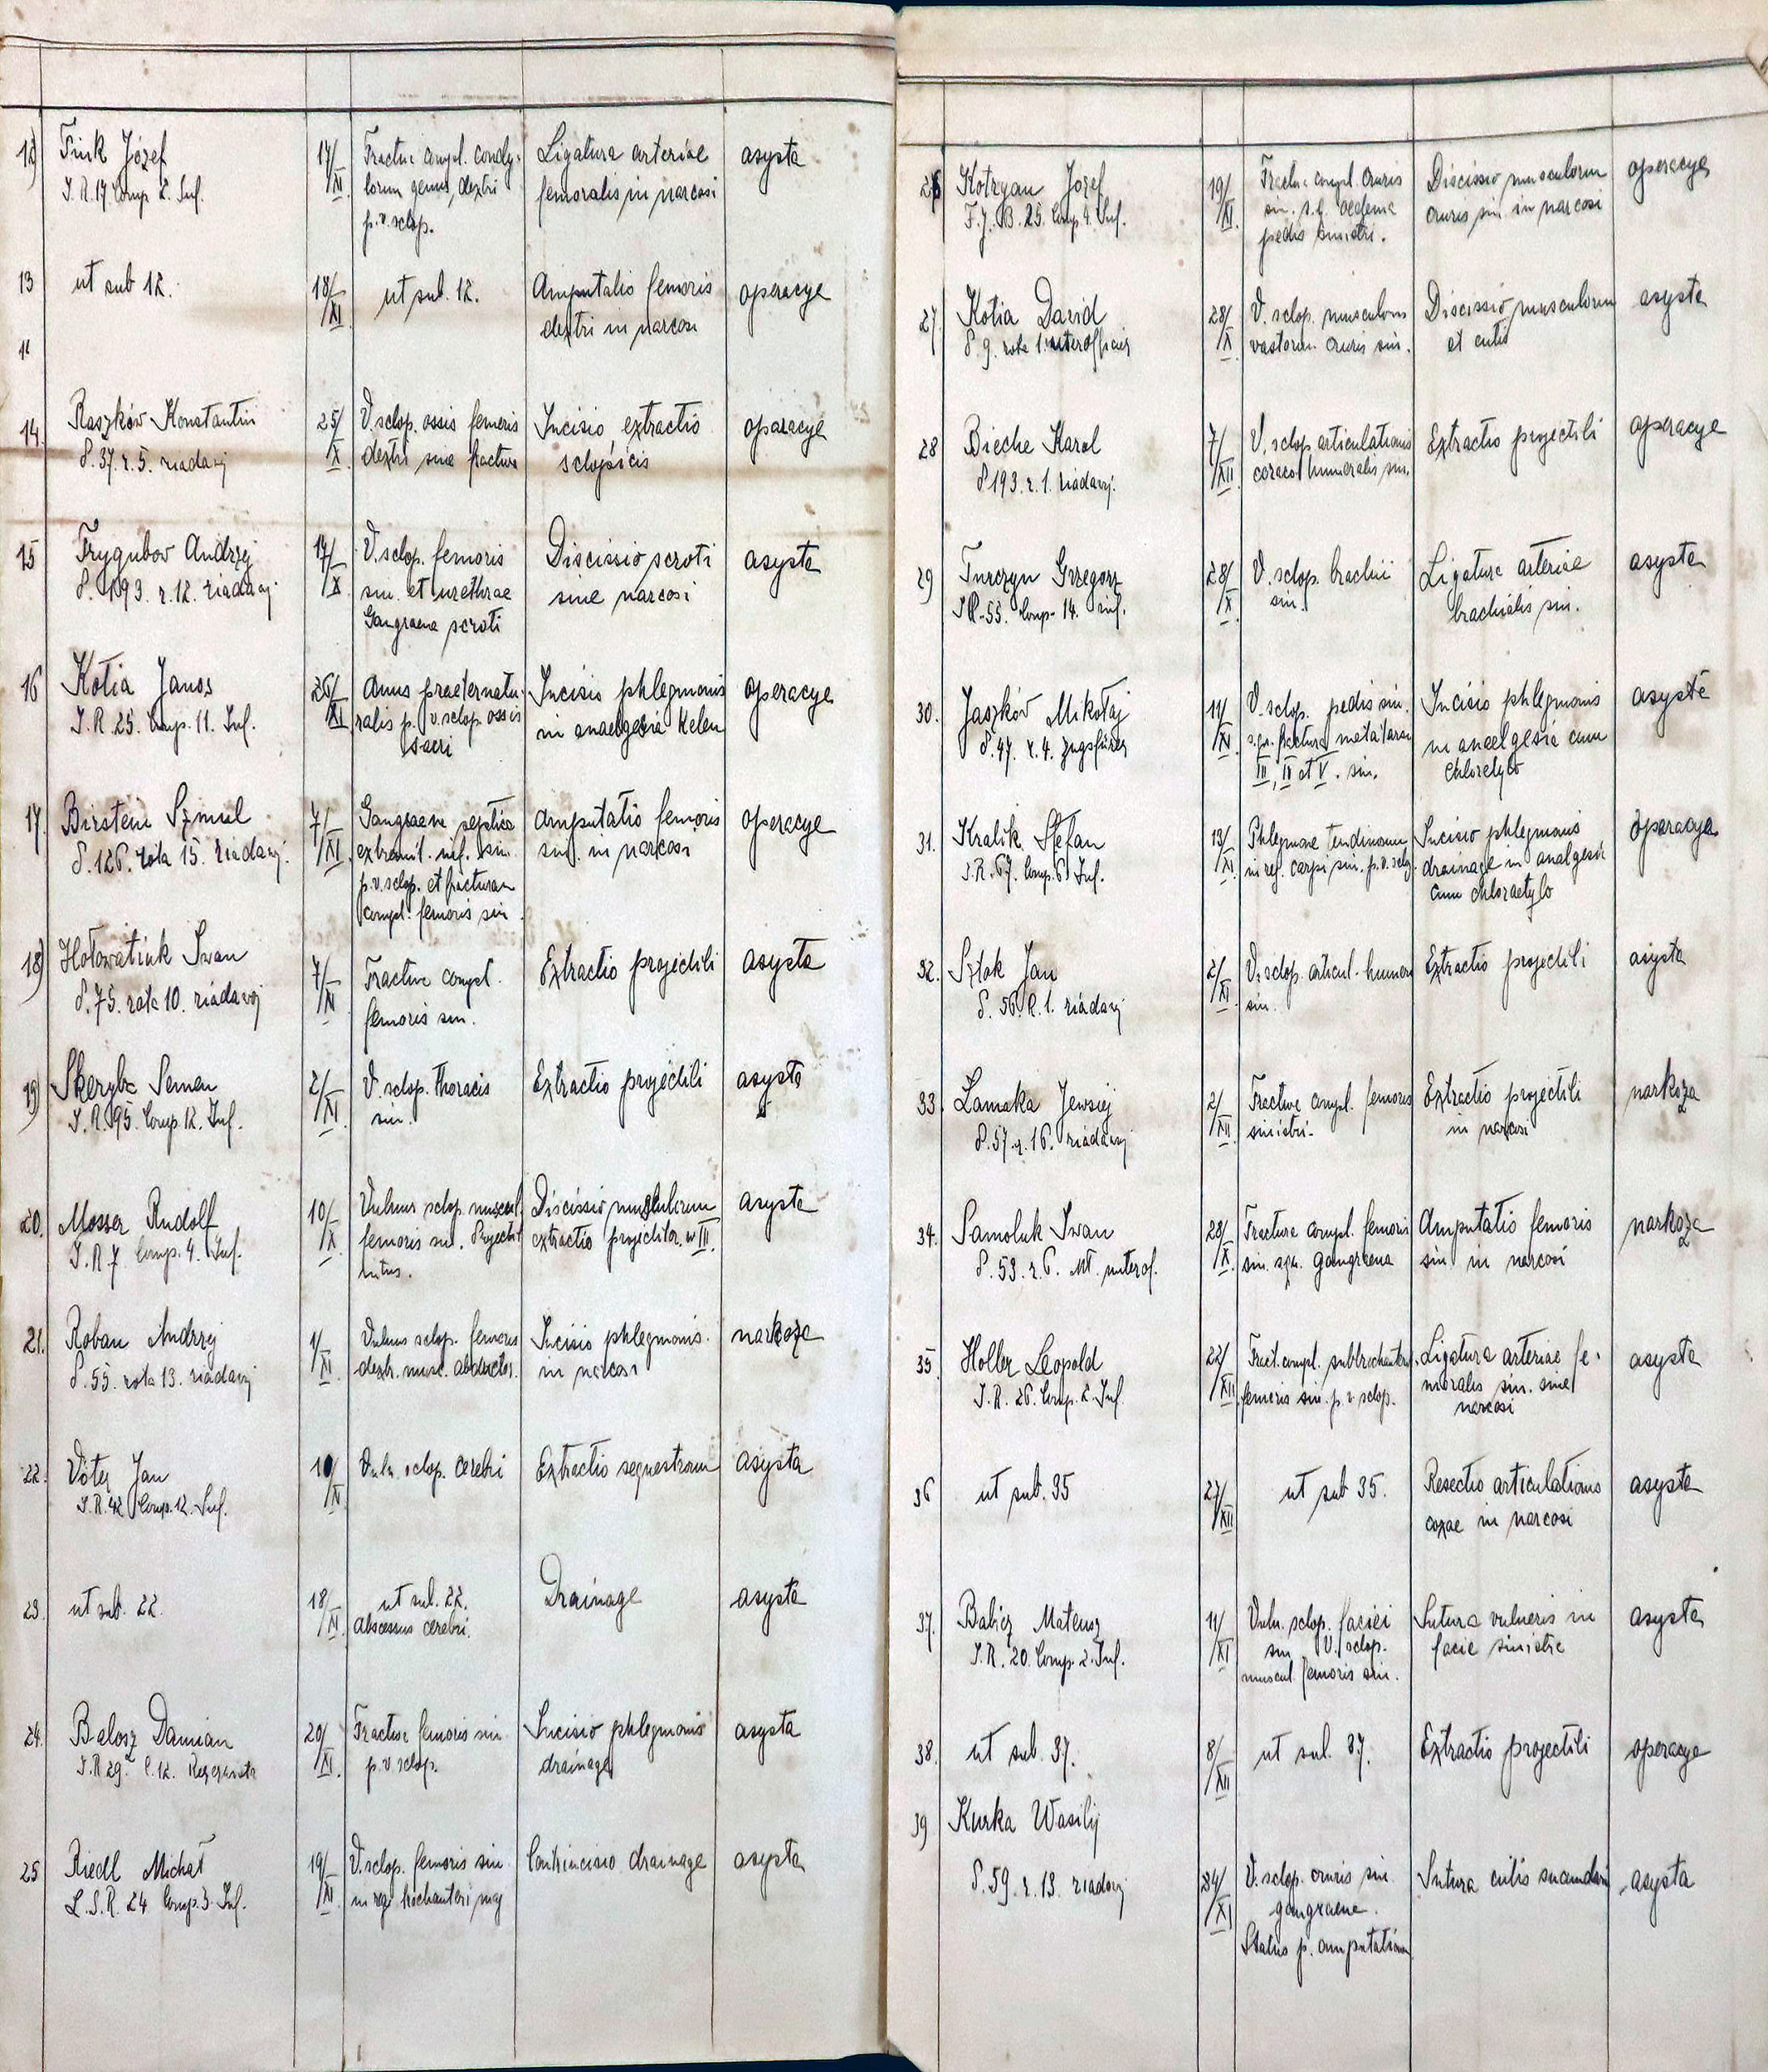 12) Fink Józef 17/XI Fractura compl. condy- Ligatura arteriae asysta
I. R. 17 Comp 2. Inf. lorum genus, dextri femoralis in narcosi
p. v. sclop.
13 ut sub 12. 18/XI ut sub. 12. Amputatio femoris operacye
dextri in narcosi
14. Raszków Konstantin 25/X V. sclop. ossis femoris Incisio, extractio operacye
P. 37. r. 5. riadavj dextri sine fractura
15 Trygubov Andrzej 17/X V. sclop. femoris Discissio scroti asysta
P. 193. r. 12. riadavj sin. et urethrae sine narcosi
Gangraena scroti
16 Kotia Janos 26/XI Anus praeternatu- Incisio phlegmonis operacye
I. R. 25. Comp. 11. Inf. ralis p. v. sclop. ossis in anaelgesia Kelen
sacri
17. Birstein Szmul 7/XI Gangraena septica Amputatio femoris operacye
P. 126. rota 15. riadavj. extremit. inf. sin. sin. in narcosi
p. v. sclop. et fracturam
compl. femoris sin.
18) Hołowatiuk Iwan 7/XI Fractura compl. Extractio projectili asysta
P. 75. rota 10. riadavoj femoris sin.
19) Skeryba Semen 2/XI V. sclop. thoracis Extractio projectili asysta
I. R. 95. Comp. 12. Inf. sin.
20. Mosser Rudolf 10/X Vulnus sclop. muscul. Discissio musculorum asysta
I. R 7 Comp. 4. Inf. femoris sin. Projectil extractio projectilor. w III.
intus.
21. Roban Andrzej 1/XI Vulnus sclop. femoris Incisio phlegmonis. narkoza
P. 55. rota 13. riadavj dextr. musc. abductor. in narcosi
22. Vötej Jan 10/XI Vuln. sclop. cerebri Extractio sequestrorum asysta
I. R. 42 Comp. 12. Inf.
23. ut sub. 22. 18/XI ut sub. 22. Drainage asysta
Abscessus cerebri.
24. Balosz Damian 20/XI Fractura femoris sin Incisio phlegmonis asysta
I. R 29. C. 12. p. v. sclop. drainage
25 Riedl Michał 19/XI V. sclop. femoris sin Contrincisio drainage asysta
L. I. R. 24 Comp. 3. Inf. in reg. trochanteri maj
26 Kotryan Jozef 19/XI Fractura compl. cruris Discissio musculorum operacye
F. J. B. 25. Comp. 4. Inf. sin. s. q. oedema cruris sin in narcosi
pedis sinistri.
27 Kotia David 28/X V. sclop. musculorum Discissio musculorum asysta
P. 9. rota 1. unterofficier vastorum cruris sin. et cutis
28 Bieche Karol 7/XII V. sclop. articulationis Extractio projectili operacye
P 193. r. 1. riadavj. coraco humeralis sin.
29 Turczyn Grzegorz 28/X V. sclop. brachii Ligatura arteriae asysta
I R. 55. Comp. 14. inf. sin. brachialis sin.
30. Jaszków Mikołaj 11/XI V. sclop. pedis sin. Incisio phlegmonis asysta
P. 47. r. 4. Zugsführer s. q. fractura metatarsi in anaelgesia cum
III, IV et V. sin. chloretylo
31. Kralik Stefan 13/XI Phlegmone tendinom Incisio phlegmonis operacya
I. R. 67. Comp. 6 Inf. in reg. carpi, sin. p. v. sclop. drainage in analgesia
cum chloraetylo
32. Sztok Jan 2/XI V. sclop. articul. humeri Extractio projectili asysta
P. 56. R. 1. riadavj sin.
33. Lamaka Jewsiej 2/XII Fractura compl. femoris Extractio projectili narkoza
P. 57. r. 16. riadavj sinistri. in narcosi
34. Samoluk Iwan 28/X Fractura compl. femoris Amputatio femoris narkoza
P. 53. r. 6. unterof. sin. sqn. gangraena sin in narcosi
35. Holler Leopold 22/XII Fract. compl. subtrochanter. Ligatura arteriae fe-
I. R. 26. Comp. 2. Inf. femoris sin. p. v. sclop. moralis sin. sine asysta
narcosi
36 ut sub. 35 27/XII ut sub 35. Resectio articulationis asysta
coxae in narcosi
37. Babicz Mateusz 11/XI Vuln. sclop. faciei Sutura vulneris in asysta
I. R. 20. Comp. 2. Inf. sin V. sclop. facie sinistra
muscul. femoris sin.
38. ut sub. 37. 8/XII ut sub. 37. Extractio projectili operacye
39 Kurka Wasilij
P. 59. r. 13. riadovj 24/XI V. sclop. cruris sin Sutura cutis secundaria asysta
gangraena.
Status p. amputationem